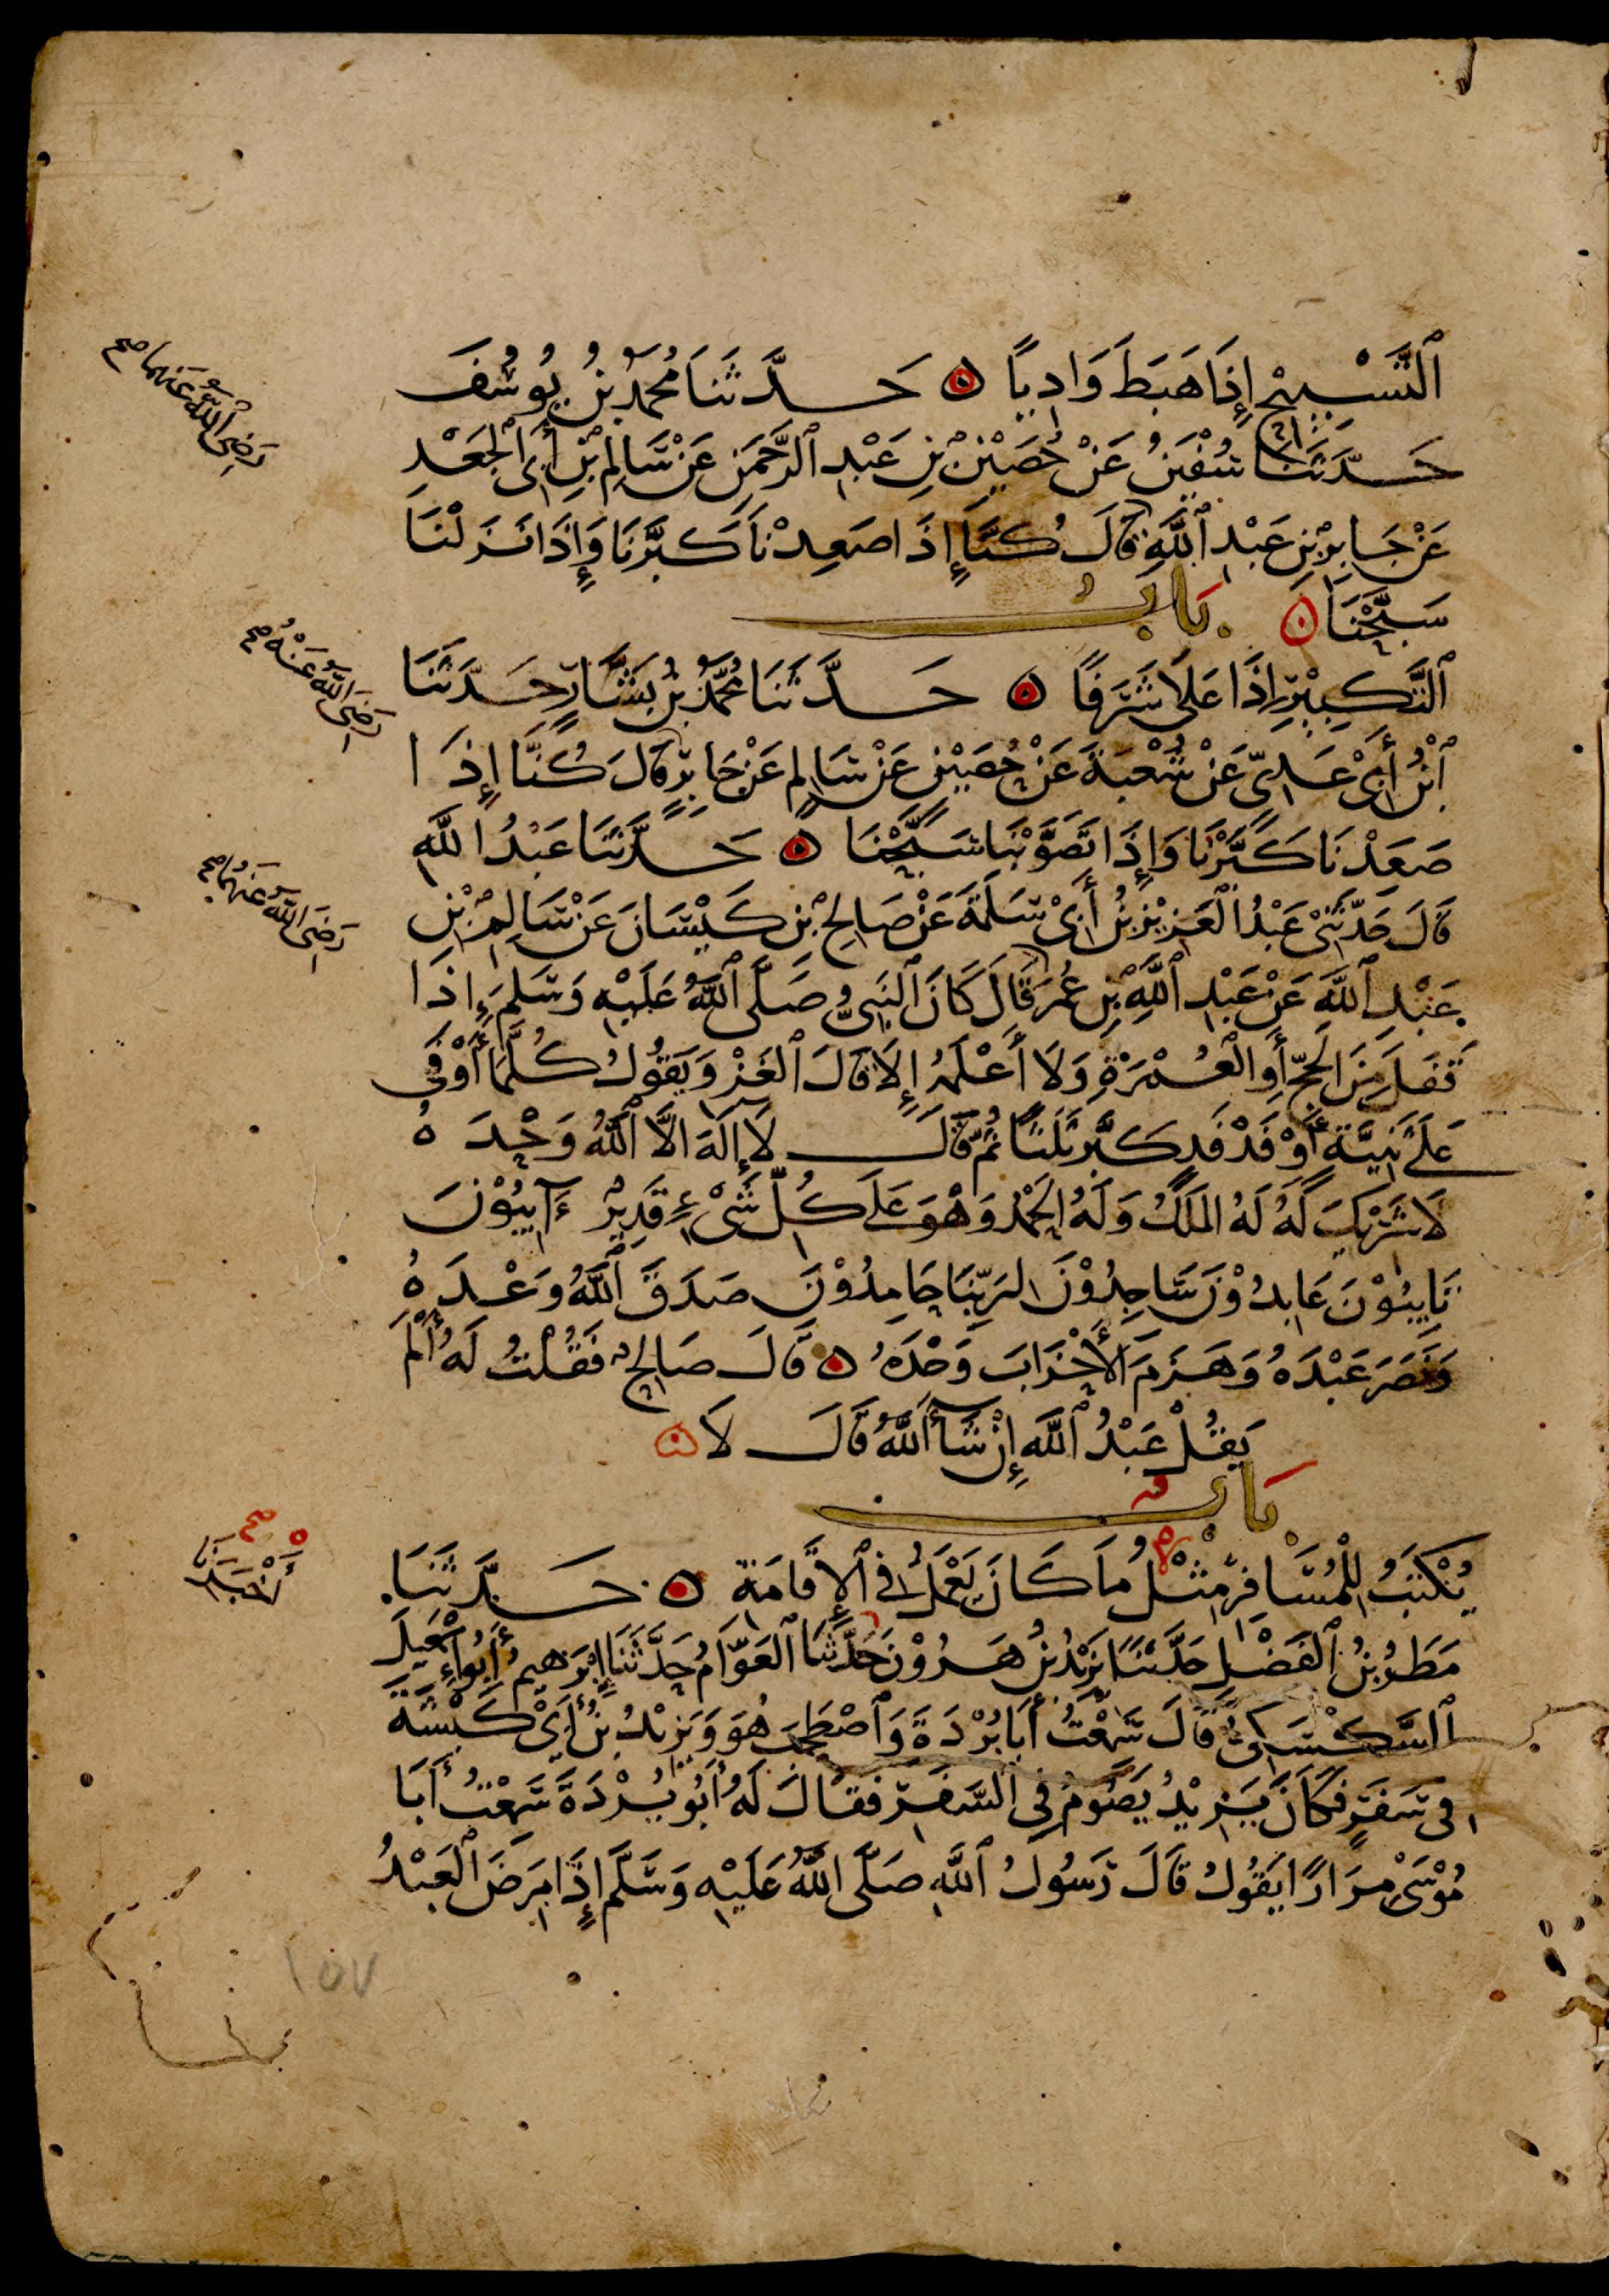 ٱلتَّسْبِيحِ إِذَا هَبَطَ وَادِيًا ۝ حَدَّثَنَا مُحَمَّدُ بْنُ يُوسُفَ
حَدَّثَنَا سُفْيَنُ عَنْ حُصَيْنِ بْنِ عَبْدِ ٱلرَّحْمَنِ عَنْ سَالِمِ بْنِ أَبِى ٱلْجَعْدِ
عَنْ جَابِرِ بْنِ عَبْدِ ٱللَّهِ قَالَ كُنَّا إِذَا صَعِدْنَا كَبَّرْنَا وَإِذَا نَزَلْنَا
سَبَّحْنَا ۝ بَابُ
ٱلتَّكْبِيْرِ إِذَا عَلَا شَرَفًا ۝ حَدَّثَنَا مُحَمَّدُ بْنُ بَشَّارٍ حَدَّثَنَا
ٱبْنُ أَبِىْ عَدِىٍّ عَنْ شُعْبَةَ عَنْ حُصَيْنٍ عَنْ سَالِمٍ عَنْ جَابِرٍ قَالَ كُنَّا إِذَا
صَعَدْنَا كَبَّرْنَا وَإِذَا تَصَوَّبْنَا سَبَّحْنَا ۝ حَدَّثَنَا عَبْدُ اللَّهِ
قَالَ حَدَّثَنِىْ عَبْدُ ٱلْعَزِيْزِ بْنُ أَبِىْ سَلَمَةَ عَنْ صَالِحِ بْنِ كَيْسَانَ عَنْ سَالِمِ بْنِ
عَبْدِ ٱللَّهِ عَنْ عَبْدِ ٱللَّهِ بْنِ عُمَرَ قَالَ كَانَ ٱلنَّبِىُّ صَلَّى ٱللَّهُ عَلَيْهِ وَسَلَّمَ إِذَا
قَفَلَ مِنَ الْحَجِّ أَوِ الْعُمْرَةِ وَلَا أَعْلَمُهُ إِلَّا قَالَ ٱلْغَزْوِ يَقُوْلُ كُلَّمَا أَوْفَى
عَلَى ثَنِيَّةٍ أَوْ فَدْفَدٍ كَبَّرَ ثَلَثًا ثُمَّ قَالَ لَا إِلَهَ إِلَّا ٱللَّهُ وَحْدَهُ
لَا شَرِيْكَ لَهُ لَهُ الْمُلْكُ وَلَهُ الْحَمْدُ وَهْوَ عَلَى كُلِّ شَىْءٍ قَدِيْرٌ ءَآيِبُوْنَ
تَايِبُوْنَ عَابِدُوْنَ سَاجِدُوْنَ لِرَبِّنَا حَامِدُوْنَ صَدَقَ ٱللَّهُ وَعْدَهُ
وَنَصَرَ عَبْدَهُ وَهَزَمَ الْأَحْزَابَ وَحْدَهُ ۝ قَالَ صَالِحٌ فَقُلْتُ لَهُ أَلَمْ
يَقُلْ عَبْدُ ٱللَّهِ إِنْ شَآءَ ٱللَّهُ قَالَ لَا ۝
بَابٌ
يُكْتَبُ لِلْمُسَافِرِ مِثْلُ مَا كَانَ يَعْمَلُ فِى ٱلْإِقَامَةِ ۝ حَدَّثَنَا
مَطَرُ بْنُ ٱلْفَضْلِ حَدَّثَنَا يَزِيْدُ بْنُ هَرُوْنَ حَدَّثَنَا ٱلْعَوَّامُ حَدَّثَنَا إِبْرَهِيمُ أَبُو إِسْمَعِيلَ
ٱلسَّكْسَكِىُّ قَالَ سَمِعْتُ أَبَا بُرْدَةَ وَٱصْطَحَبَ هُوَ وَيَزِيْدُ بْنُ أَبِىْ كَبْشَةَ
فِى سَفَرٍ فَكَانَ يَزِيْدُ يَصُوْمُ فِى ٱلسَّفَرِ فَقَالَ لَهُ أَبُو بُرْدَةَ سَمِعْتُ أَبَا
مُوْسَى مِرَارًا يَقُوْلُ قَالَ رَسُولُ ٱللَّهِ صَلَّى اللَّهُ عَلَيْهِ وَسَلَّمَ إِذَا مَرِضَ ٱلْعَبْدُ
رَضِىَ ٱللَّهُ عَنْهُمَا صح
رَضِىَ اللَّهُ عَنْهُ صح
رَضِىَ اللَّهُ عَنْهُمَا صح
ه صح
أَخْبَرَنَا
١٥٧